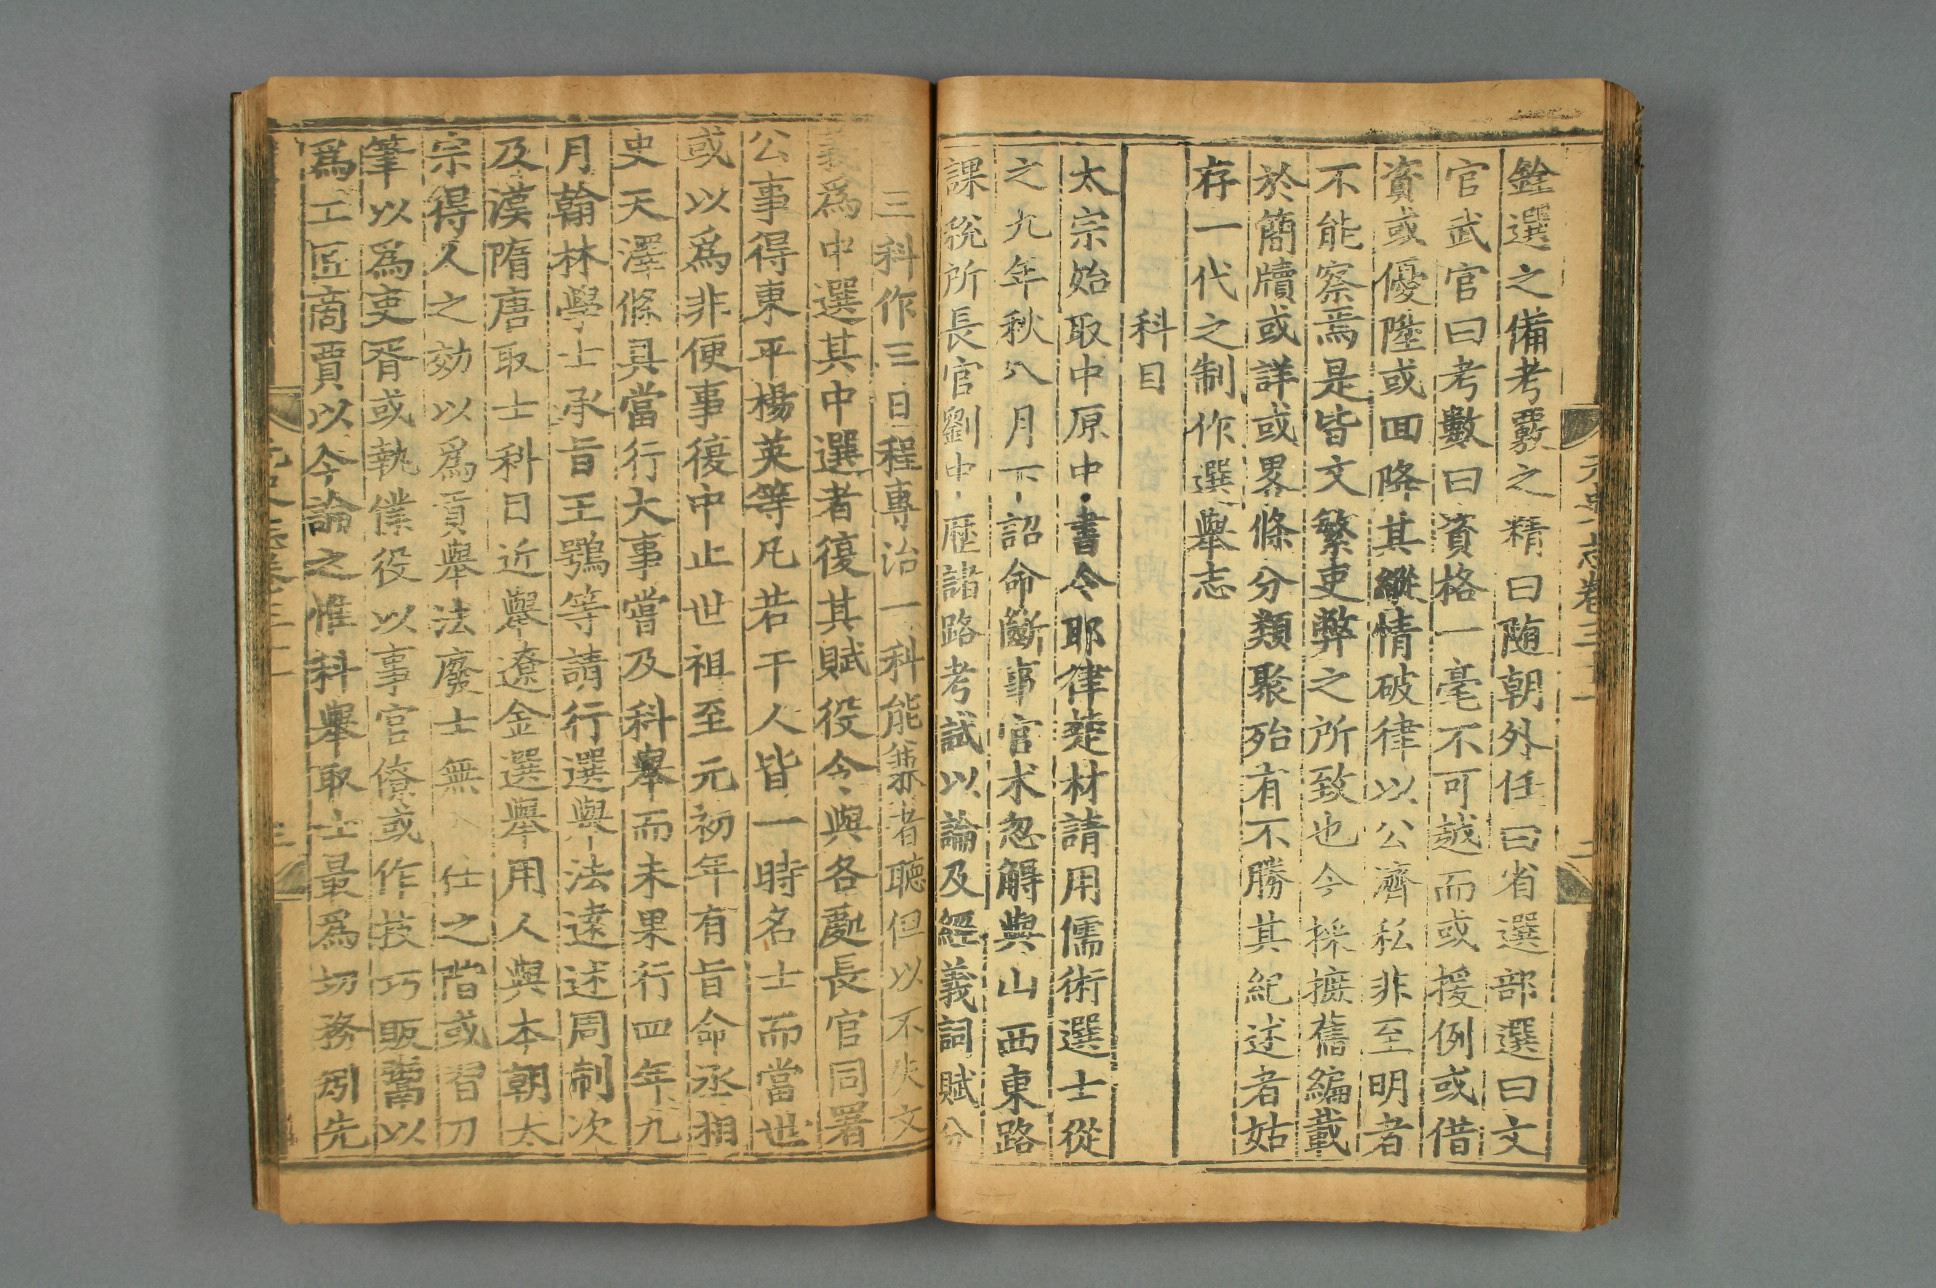 元史志卷三十一
二
銓選之備考覈之精曰随朝外任曰省選部選曰文
官武官曰考數曰資格一毫不可越而或援例或借
資或優陞或回降其縱情破律以公濟私非至明者
不能察焉是皆文繁吏弊之所致也今採摭舊編載
於簡牘或詳或畧條分類聚殆有不勝其紀述者姑
存一代之制作選舉志
科目
太宗始取中原中書令耶律楚材請用儒術選士從
之九年秋八月下詔命斷事官术忽䚟與山西東路
課稅所長官劉中歷諸路考試以論及經義詞賦分
三科作三日程專治一科能兼者聽但以不失文
義爲中選其中選者復其賦役令與各處長官同署
公事得東平楊英等凡若干人皆一時名士而當世
或以爲非便事復中止世祖至元初年有旨命丞相
史天澤條具當行大事嘗及科舉而未果行四年九
月翰林學士承旨王鶚等請行選舉法遠述周制次
及漢隋唐取士科目近舉遼金選舉用人與本朝太
宗得人之効以爲貢舉法廢士無入仕之階或習刀
筆以爲吏胥或執僕役以事官僚或作技巧販鬻以
爲工匠商賈以今論之惟科舉取士最爲切務矧先